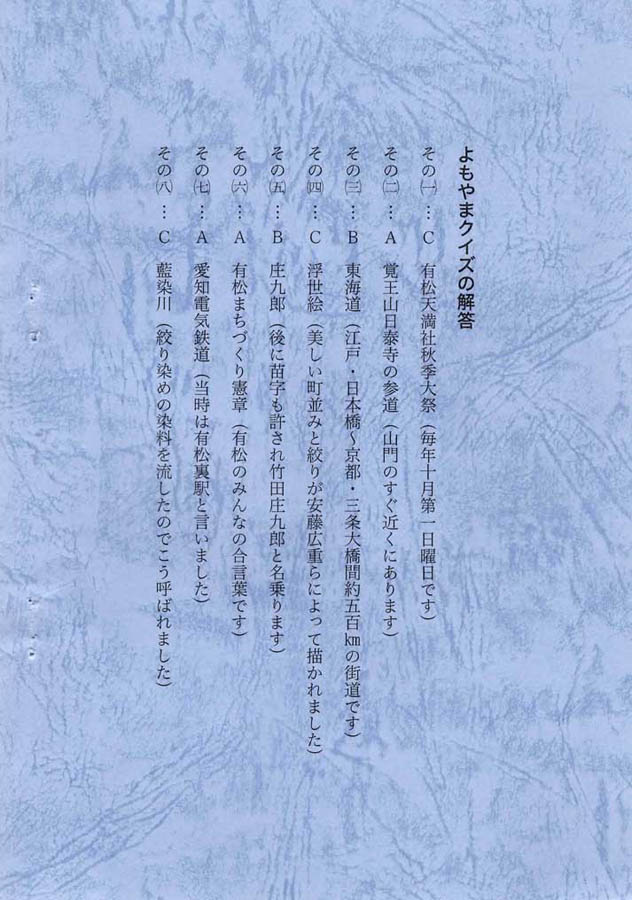 よもやまクイズの解答
その㈠ … C 有松天満社秋季大祭（毎年十月第一日曜日です）
その㈡ … A 覚王山日泰寺の参道（山門のすぐ近くにあります）
その㈢ … B 東海道（江戸・日本橋～京都・三条大橋間約五百㎞の街道です）
その㈣ … C 浮世絵（美しい町並みと絞りが安藤広重らによって描かれました）
その㈤ … B 庄九郎（後に苗字も許され竹田庄九郎と名乗ります）
その㈥ … A 有松まちづくり憲章（有松のみんなの合言葉です）
その㈦ … A 愛知電気鉄道（当時は有松裏駅と言いました）
その㈧ … C 藍染川（絞り染めの染料を流したのでこう呼ばれました）